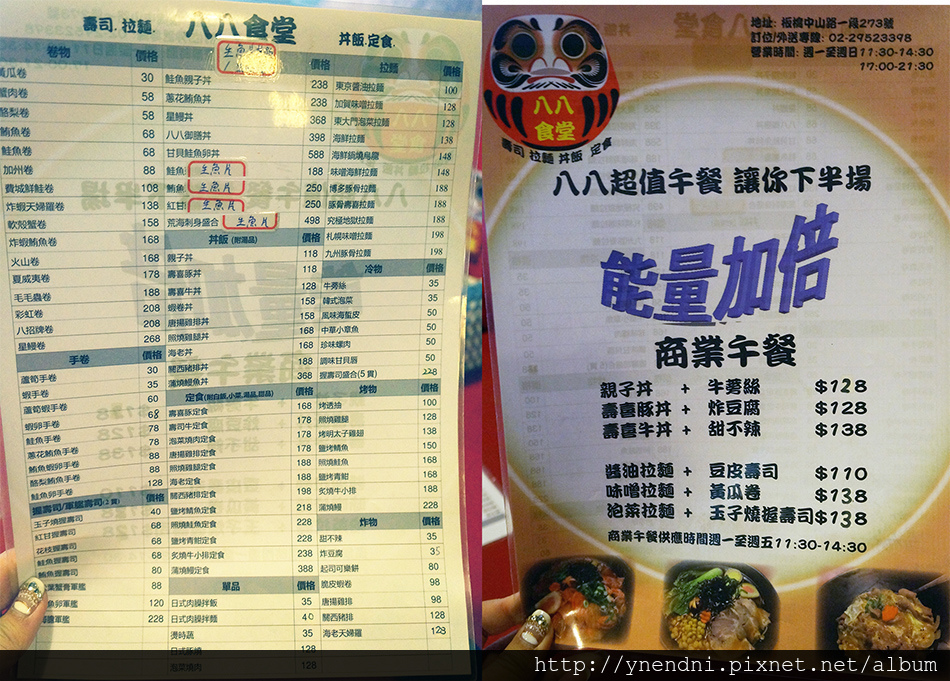 壽司. 拉麵.
八八食堂
丼飯.定食.
卷物 價格
黃瓜卷 30
蟹肉卷 58
酪梨卷 58
鮪魚卷 68
鮭魚卷 68
加州卷 88
費城鮮鮭卷 108
炸蝦天婦羅卷 138
軟殼蟹卷 158
炸蝦鮪魚卷 168
火山卷 168
夏威夷卷 178
毛毛蟲卷 188
彩虹卷 208
八招牌卷 208
星鰻卷 268
手卷 價格
蘆筍手卷 30
蝦手卷 35
蘆筍蝦手卷 60
蝦卵手卷 68
鮭魚手卷 78
蔥花鮪魚手卷 78
鮪魚蝦卵手卷 88
酪梨鮪魚手卷 88
鮭魚卵手卷 128
握壽司/軍艦壽司(2貫) 價格
玉子燒握壽司 40
紅甘握壽司 68
花枝握壽司 68
鮭魚握壽司 68
鮪魚握壽司 80
蟹膏軍艦 88
魚卵軍艦 120
軍艦 228
生魚
鮭魚親子丼 238
蔥花鮪魚丼 238
星鰻丼 368
八八御膳丼 398
甘貝鮭魚卵丼 588
鮭魚 生魚片 188
鮪魚 生魚片 250
紅甘 生魚片 250
荒海刺身盛合 生魚片 498
丼飯 (附湯品) 價格
親子丼 118
壽喜豚丼 118
壽喜牛丼 128
蝦卷丼 158
唐揚雞排丼 158
照燒雞腿丼 168
海老丼 168
關西豬排丼 188
蒲燒鰻魚丼 368
定食(附白飯,小菜,湯品,甜品) 價格
壽喜豚定食 168
壽司牛定食 178
泡菜燒肉定食 178
唐揚雞排定食 178
照燒雞腿定食 188
海老定食 188
關西豬排定食 198
鹽烤鯖魚定食 218
照燒鮭魚定食 228
鹽烤青魽定食 228
炙燒小牛排定食 238
蒲燒鰻定食 388
單品 價格
日式肉臊拌飯 35
日式肉臊拌麵 40
燙時蔬 35
日式豚燒 128
泡菜燒肉 128
拉麵 價格
東京醬油拉麵 100
加賀味噌拉麵 128
東大門泡菜拉麵 128
海鮮拉麵 138
海鮮鍋燒烏龍 148
味噌海鮮拉麵 148
博多豚骨拉麵 188
豚骨壽喜拉麵 188
究極地獄拉麵 188
札幌味噌拉麵 198
九州豚骨拉麵 198
冷物 價格
牛蒡絲 35
韓式泡菜 35
風味海蜇皮 50
中華小章魚 50
珍味螺肉 50
調味甘貝唇 50
握壽司盛合(5貫) 228
烤物 價格
烤透抽 100
照燒雞腿 128
烤明太子雞翅 138
鹽烤鯖魚 150
照燒鮭魚 168
鹽烤青魽 168
炙燒小牛排 188
蒲燒鰻 228
炸物 價格
甜不辣 35
炸豆腐 35
起司可樂餅 80
脆皮蝦卷 98
唐揚雞排 98
關西豬排 128
海老天婦羅 128
地址: 板橋中山路一段273號
訂位/外送專線: 02-29523398
營業時間: 週一至週日11:30-14:30
17:00-21:30
八八
食堂
壽司 拉麵 丼飯 定食
八八超值午餐 讓你下半場
能量加倍
商業午餐
親子丼 + 牛蒡絲 $128
壽喜豚丼 + 炸豆腐 $128
壽喜牛丼 + 甜不辣 $138
醬油拉麵 + 豆皮壽司 $110
味噌拉麵 + 黃瓜卷 $138
泡菜拉麵 + 玉子燒握壽司 $138
商業午餐供應時間週一至週五11:30-14:30
http://ynendni.pixnet.net/album